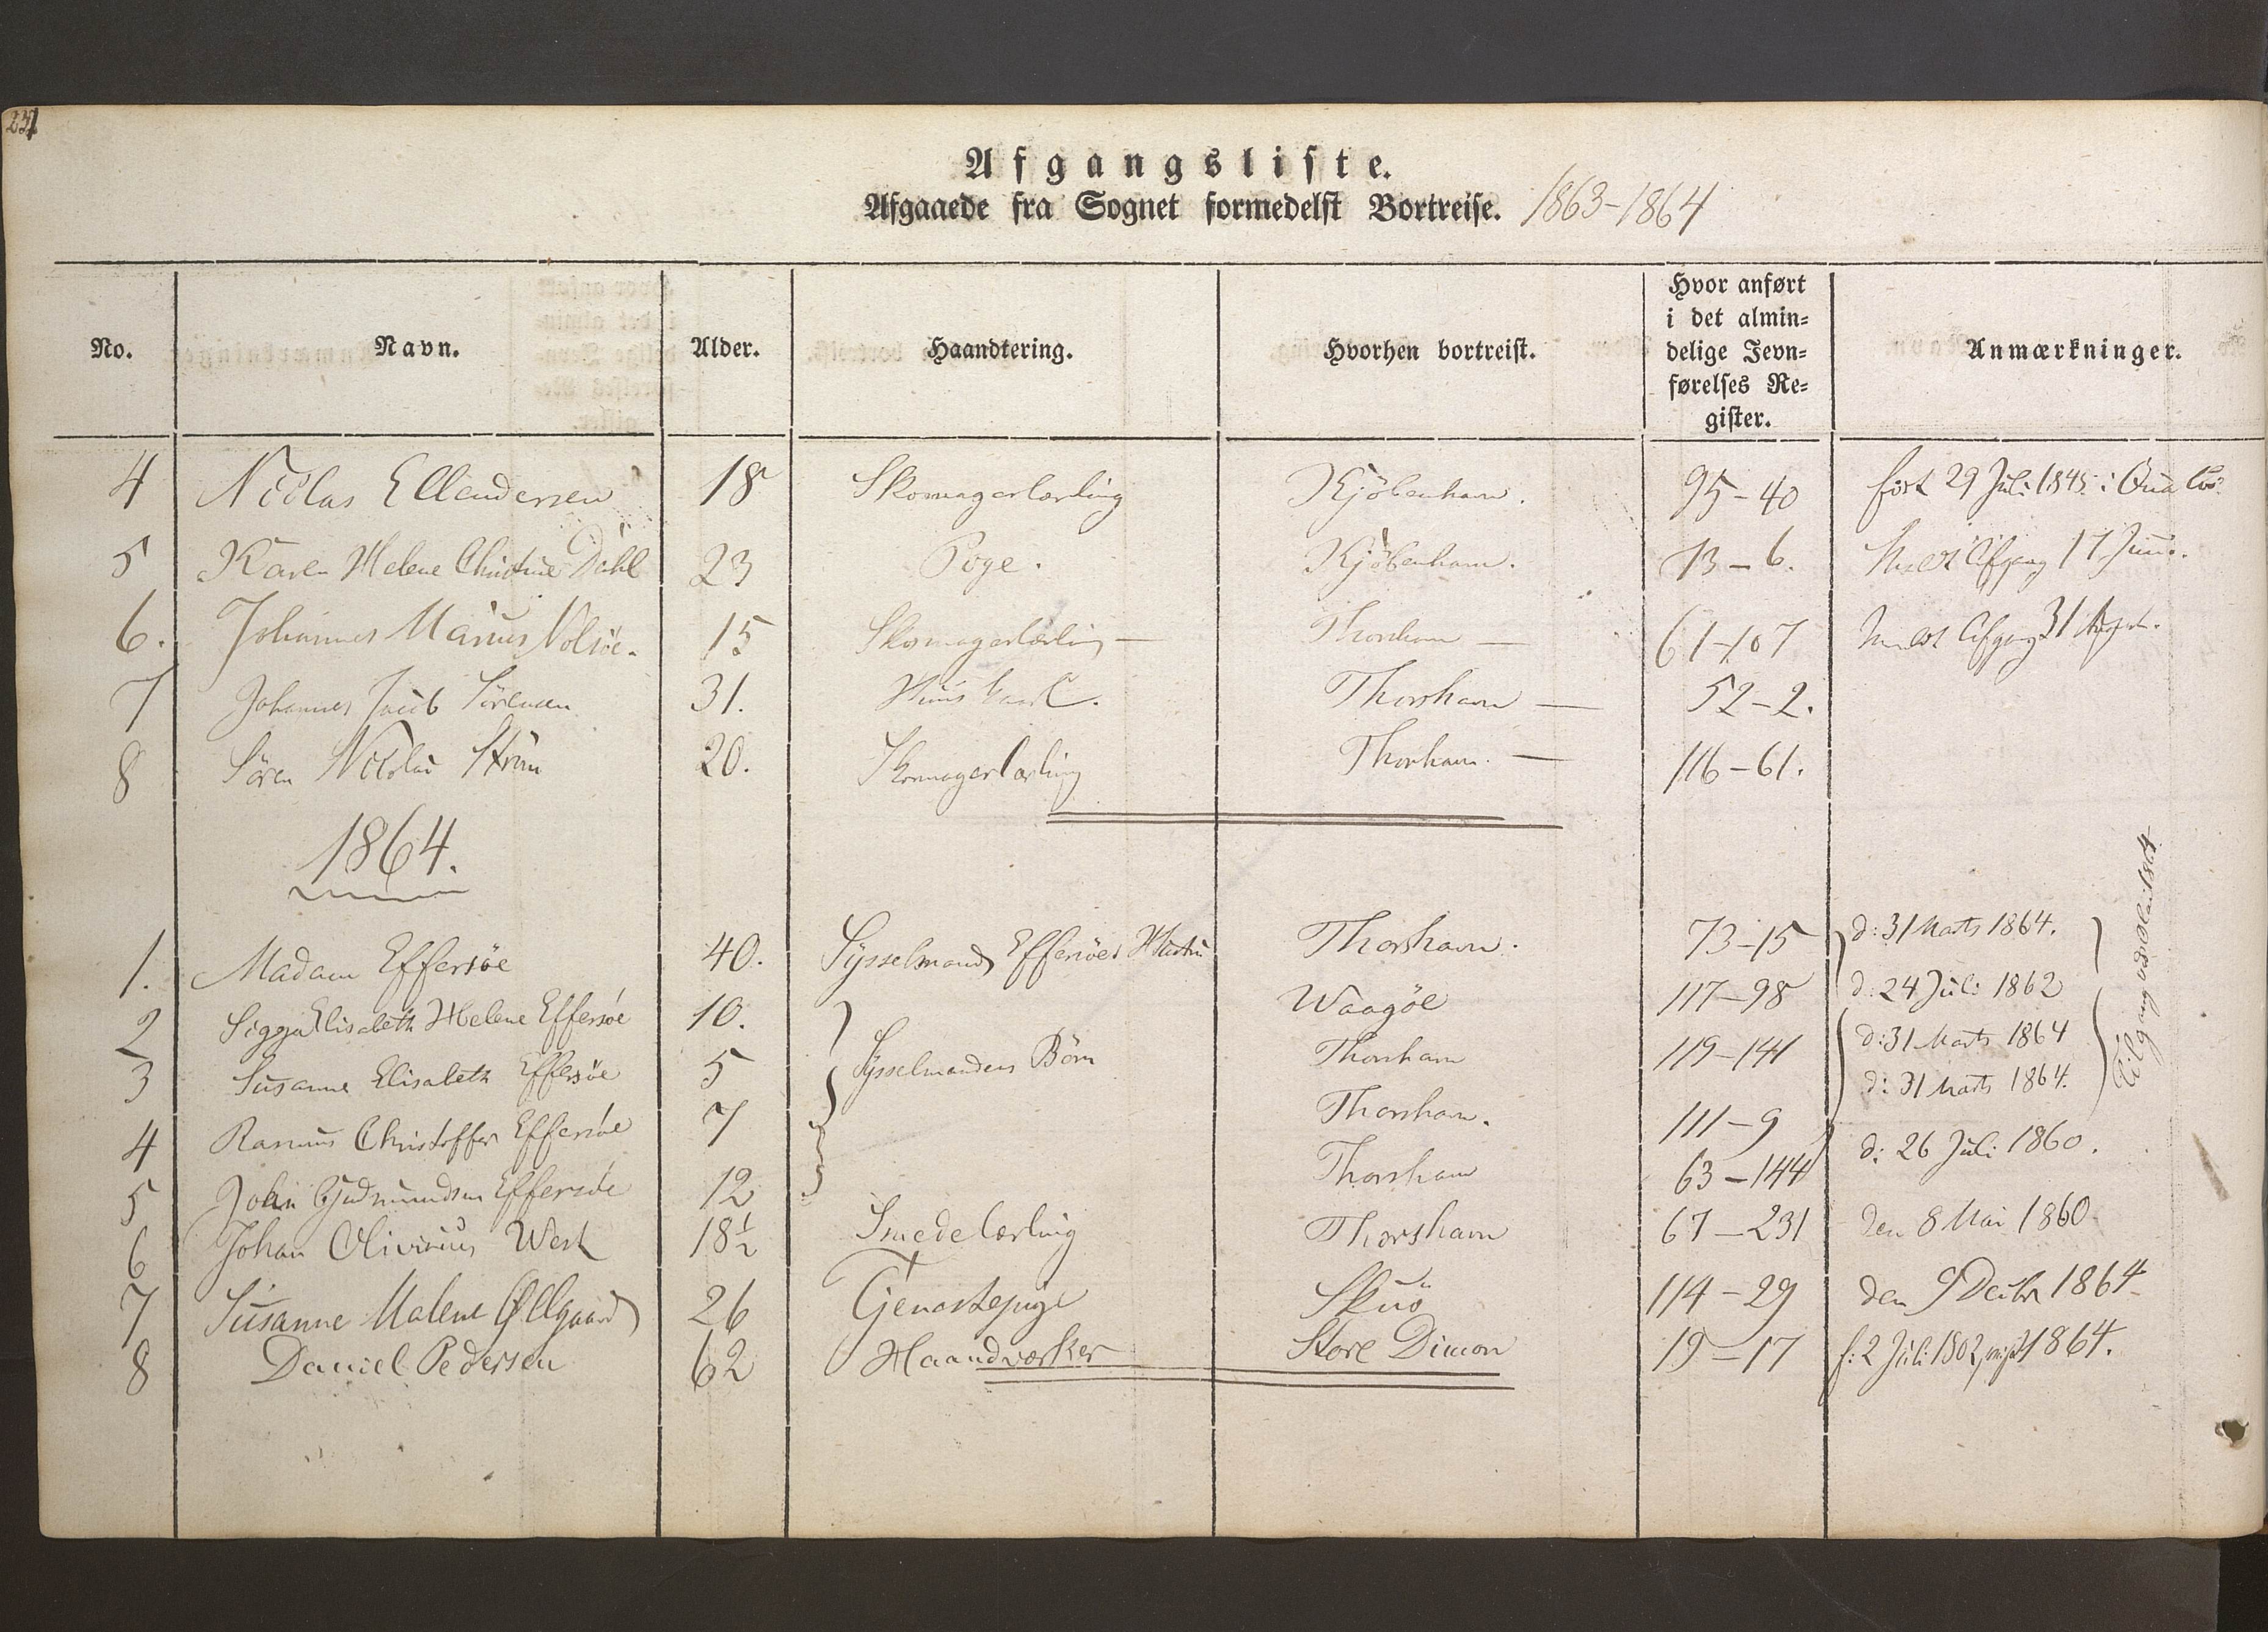 251
Afgangsliste.
Afgaaede fra Sognet formedelst Bortreise. 1863-1864
No. Navn. Alder. Haandtering. Hvorhen bortreist. Hvor anført i det almin= delige Jevn= førelses Re= gister. Anmærkninger.
4 Nicolas Ellendersen 18 Skomagerlærling Kjöbenhavn. 95-40 født 29 Juli 1845 i
5 Karen Helene Christine Dahl 23 Pige. Kjöbenhavn. 13-6. Afgang 17 Juni.
6. Johannes Marius Nolsöe. 15 Skomagerlærling — Thorshavn — 61-107 Afgang 31 August.
7 Johannes Jacob Sörensen 31. Huuskarl. Thorshavn — 52-2.
8 Sören Nicolai 20. Skomagerlærling Thorshavn. — 116-61.
1864.
1. Madam Effersöe 40. Sysselmand Effersöes Hustru Thorshavn. 73-15 d: 31 Marts 1864.
2 Sigga Elisabeth Helene Effersöe 10. Waagöe 117-98 d. 24 Juli 1862
3 Susanne Elisabeth Effersöe 5 Sysselmandens Börn Thorshavn 119-141 d: 31 Marts 1864
4 Rasmus Christoffer Effersöe 7 Thorshavn. 111-9 d: 31 Marts 1864.
5 John Gudmundsen Effersöe 12 Thorshavn 63-144 d: 26 Juli 1860.
6 Johan Olivius West 18½ Smedelærling Thorshavn 67-231 den 8 Mai 1860
7 Susanne Malene Øllgaard 26 Tjenestepige Skuö 114-29 den 9 Decbr 1864
8 Daniel Pedersen 62 Haandværker Store Dimon 19-17 f: 2 Juli 1802, 1864.